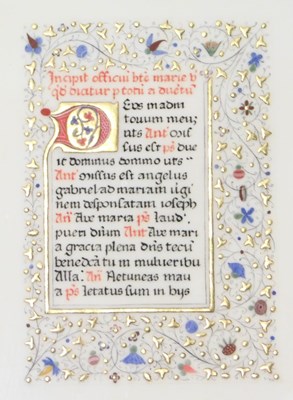 Incipit officiu bte marie v
qd dicatur p totu a duetu
Deus madiu
touum meu;
uts Ant Missus
sus est ps due
it dominus domino uts
Ant Missus est angelus
gabriel ad mariam ugi
nem desponsatam ioseph
An Aue maria ps laud
pueri dnum Ant Aue mari
a gracia plena dns tecu
benedicta tu in mulieribu
Alla. An Ne timeas mari
a ps letatus sum in hys